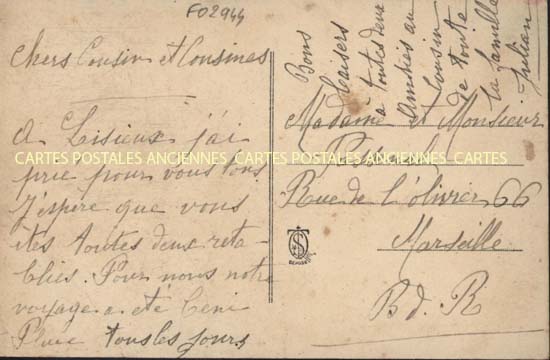 F02944
Chers Cousin et Cousines
A Lisieux j'ai
prié pour vous tous
J'espère que vous
êtes toutes deux réta-
blies. Pour nous notre
voyage a été béni
Pluie tous les jours
Bons
baisers
a toutes deux
Amitiés au
Cousin
de toute
la famille
Julian
Madame et Monsieur
Rue de l'olivier 66
Marseille
B d. R
CARTES POSTALES ANCIENNES CARTES POSTALES ANCIENNES CARTES